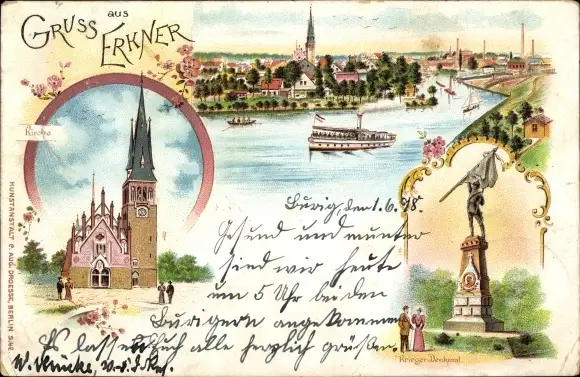 GRUSS aus ERKNER
Kirche
Burig, den 1.6.98.
Gesund und munter
sind wir heute
um 5 Uhr bei den
Burigern angekommen
Es lassen Euch alle herzlich grüßen
Krieger-Denkmal.
KUNSTANSTALT C. AUG. DROESSE, BERLIN S.42.